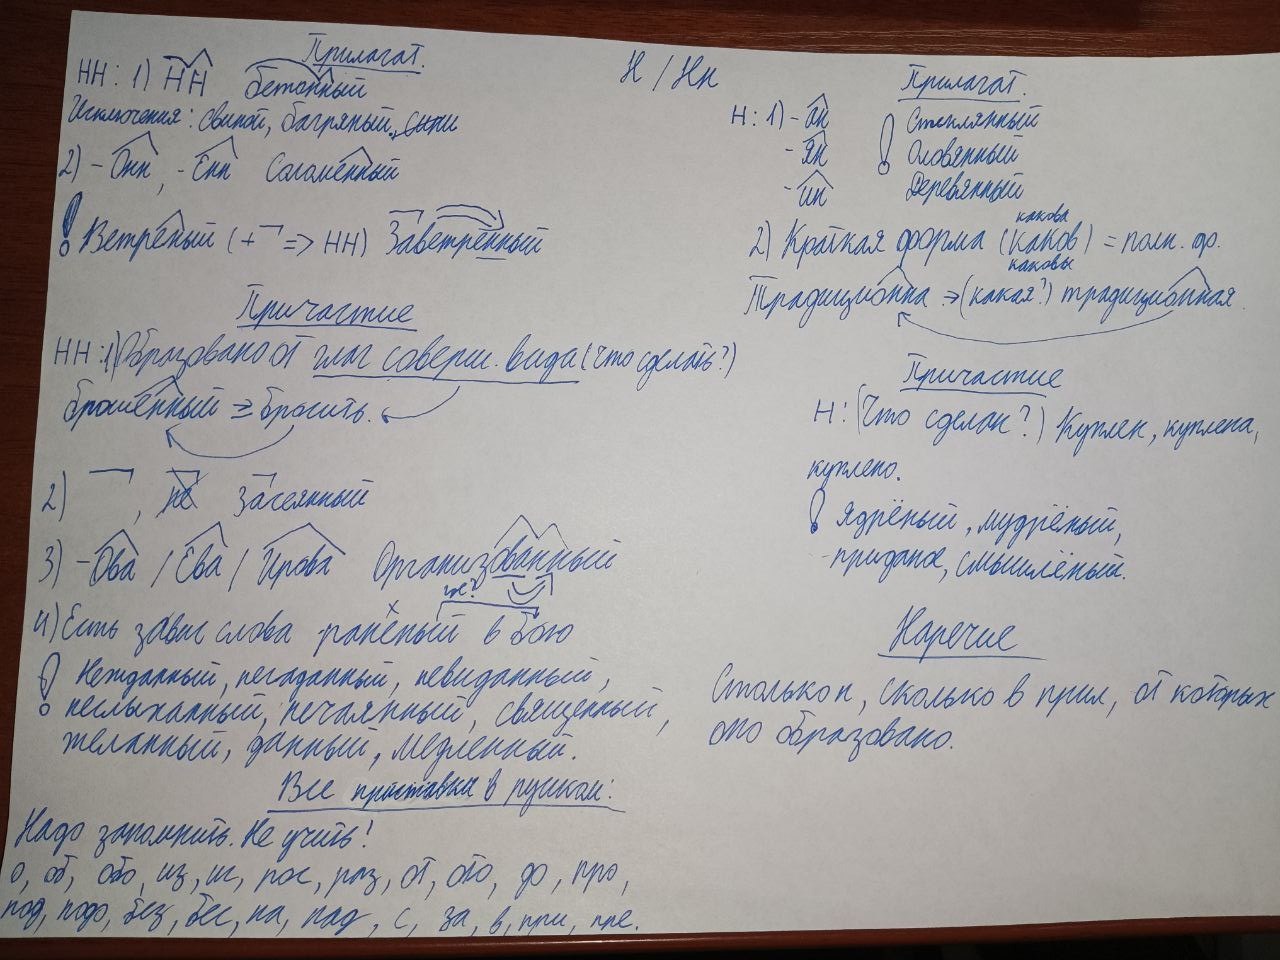 Н / Нн
Прилагат.
НН: 1) НН бетонный
Исключения: свиной, багряный,
2) -Онн, -Енн Соломенный
! Ветреный (+ => НН) Заветренный
Причастие
НН: 1) Образовано от глаг соверш. вида (что сделать?)
брошенный => бросить.
2) , не Засеянный
3) -Ова / Ева / Ирова Организованный
4) Есть завис слова -раненый в бою
! Нежданный, негаданный, невиданный,
неслыханный, нечаянный, священный,
желанный, данный, медленный.
Все приставки в русском:
Надо запомнить. Не учить!
о, об, обо, из, ис, рос, раз, от, ото, до, про,
под, подо, без, бес, на, над, с, за, в, при, пре.
Прилагат.
Н: 1) -ан ! Стеклянный
-ян Оловянный
-ин Деревянный
какова
2) Краткая форма (каков) = полн. ф.
каковы
Традиционна => (какая?) традиционная.
Причастие
Н: (Что сделан?) Куплен, куплена,
куплено.
! Ядрёный, мудрёный,
-приданое, смышлёный.
Наречие
Столько н, сколько в прил, от которых
оно образовано.